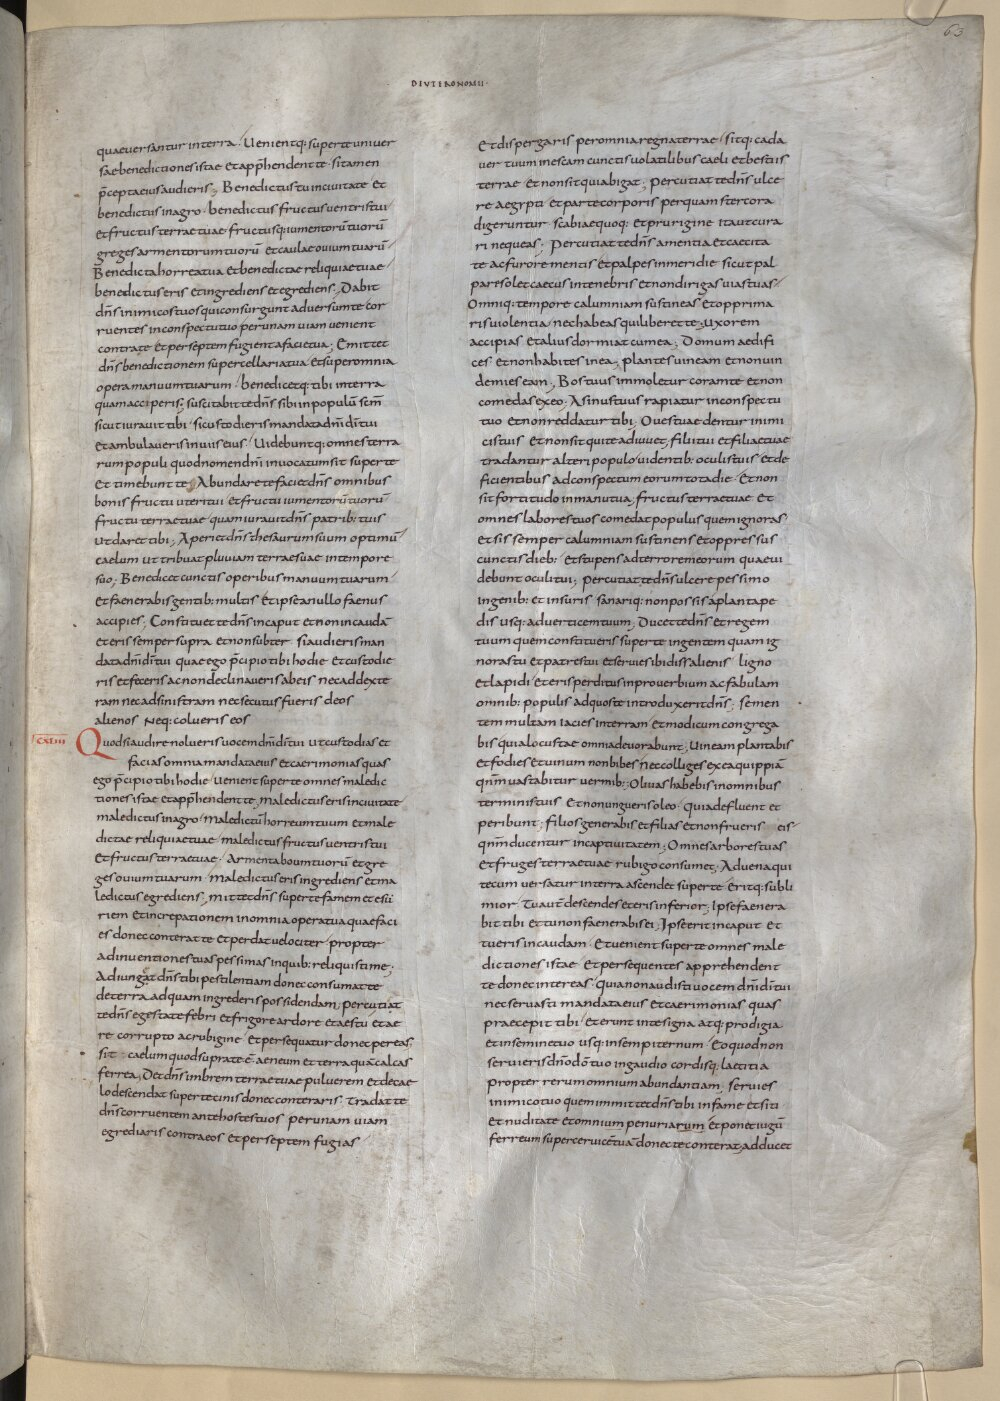 63
DEUTERONOMII·
quae versantur in terra / Uenientq: super te univer
sae benedictiones istae et app̄hendent te· si tamen
p̄cepta eius audieris; Benedictus tu in civitate et
benedictus in agro· benedictus fructus ventris tui
et fructus terrae tuae fructusq; iumentorū tuorū
greges armentorum tuorū et caulae ovium tuarū
Benedicta horrea tua et benedictae reliquiae tuae
benedictus eris et ingrediens et egrediens; Dabit
dn̄s inimicos tuos qui consurgunt adversum te cor
ruentes in conspectu tuo per unam viam venient
contra te et per septem fugient a facie tua; Emittet
dn̄s benedictionem super cellaria tua et super omnia
opera manuum tuarum / benedicetq: tibi in terra
quam acciperis; suscitabit te dn̄s sibi in populū sc̄m
sicut iuravit tibi / si custodieris mandata dn̄i dī tui
et ambulaveris in viis eius / Uidebuntq; omnes terra
rum populi quod nomen dn̄i invocatum sit super te
et timebunt te; Abundare te faciet dn̄s omnibus
bonis fructu uteri tui et fructu iumentorū tuorū
fructu terrae tuae quam iuravit dn̄s patrib: tuis
ut daret tibi; Aperiet dn̄s thesaurum suum optimū
caelum ut tribuat pluviam terrae suae in tempore
suo; Benedicet cunctis operibus manuum tuarum
et faenerabis gentib: multis et ipse a nullo faenus
accipies; Constituet te dn̄s in caput et non in caudā
et eris semper supra et non subter si audieris man
data dn̄i dī tui quae ego p̄cipio tibi hodie et custodie
ris et feceris ac non declinaveris ab eis nec ad dexte
ram nec ad sinistram nec secutus fueris deos
alienos neq: colueris eos
CXLIII Quod si audire nolueris vocem dn̄i dī tui ut custodias et
facias omnia mandata eius et caerimonias quas
ego p̄cipio tibi hodie venient super te omnes maledic
tiones istae et app̄hendent te; maledictus eris in civitate
maledictus in agro· Maledictū horreum tuum et male
dictae reliquiae tuae / maledictus fructus ventris tui
et fructus terrae tuae· Armenta boum tuorū et gre
ges ovium tuarum / Maledictus eris ingrediens et ma
ledictus egrediens; mittet dn̄s super te famem et esu
riem et increpationem in omnia opera tua quae faci
es donec conterat te et perdat velociter / propter
adinventiones tuas pessimas in quib: reliquisti me;
Adiungat dn̄s tibi pestilentiam donec consumat te
de terra ad quam ingrederis possidendam; percutiat
te dn̄s egestate febri et frigore ardore et aestu et ae
re corrupto ac rubigine et persequatur donec pereas
sit caelum quod supra te ē· aeneum et terra quā calcas
ferrea; Det dn̄s imbrem terrae tuae pulverem et de cae
lo descendat super te cinis donec conteraris· Tradat te
dn̄s corruentem ante hostes tuos per unam viam
egrediaris contra eos et per septem fugias
Et dispergaris per omnia regna terrae / sitq: cada
ver tuum in escam cunctis volatilibus caeli et bestiis
terrae et non sit qui abigat; percutiat te dn̄s ulce
re aegypti et parte corporis per quam stercora
digeruntur scabia quoq: et prurigine ita ut cura
ri nequeas; percutiat te dn̄s amentia et caecita
te ac furore mentis et palpes in meridie sicut pal
pare solet caecus in tenebris et non dirigas vias tuas
Omniq: tempore calumniam sustineas et opprima
ris violentia nec habeas qui liberet te; uxorem
accipias et alius dormiat cum ea; Domum aedifi
ces et non habites in ea; plantes vineam et non vin
demies eam; Bos tuus immoletur coram te et non
comedas ex eo· Asinus tuus rapiatur in conspectu
tuo et non reddatur tibi / Oves tuae dentur inimi
cis tuis et non sit qui te adiuvet; filii tui et filiae tuae
tradantur alteri populo videntib: oculis tuis et de
ficientibus ad conspectum eorum tota die / Et non
sit fortitudo in manu tua; fructus terrae tuae et
omnes labores tuos comedat populus quem ignoras
et sis semper calumniam sustinens et oppressus
cunctis dieb: et stupens ad terrorem eorum quae vi
debunt oculi tui; percutiat te dn̄s ulcere pessimo
in genib: et in suris sanariq: non possis a planta pe
dis usq; ad verticem tuum; Ducet te dn̄s et regem
tuum quem constitueris super te in gentem quam ig
noras tu et patres tui et servies ibi diis alienis ligno
et lapidi et eris perditus in proverbium ac fabulam
omnib: populis ad quos te introduxerit dn̄s; semen
tem multam iacies in terram et modicum congrega
bis quia locustae omnia devorabunt; Uineam plantabis
et fodies et vinum non bibes nec colliges ex ea quippiā
qn̄m vastabitur vermib:; Olivas habebis in omnibus
terminis tuis et non ungueris oleo / quia defluent et
peribunt; filios generabis et filias et non frueris eis
qn̄m ducentur in captivitatem; Omnes arbores tuas
et fruges terrae tuae rubigo consumet; Advena qui
tecum versatur in terra ascendet super te eritq: subli
mior / Tu aut̄ descendes et eris inferior; Ipse faenera
bit tibi et tu non faenerabis ei; Ipse erit in caput et
tu eris in caudam / Et venient super te omnes male
dictiones istae et persequentes apprehendent
te donec intereas· Quia non audisti vocem dn̄i dī tui
nec servasti mandata eius et caerimonias quas
praecepit tibi / et erunt in te signa atq; prodigia
et in semine tuo usq; in sempiternum / Eo quod non
servieris dn̄o dō tuo in gaudio cordisq; laetitia
propter rerum omnium abundantiam; servies
inimico tuo quem immittet dn̄s tibi in fame et siti
et nuditate et omnium penuria et ponet iugū
ferreum super cervicē tuā donec te conterat; adducet